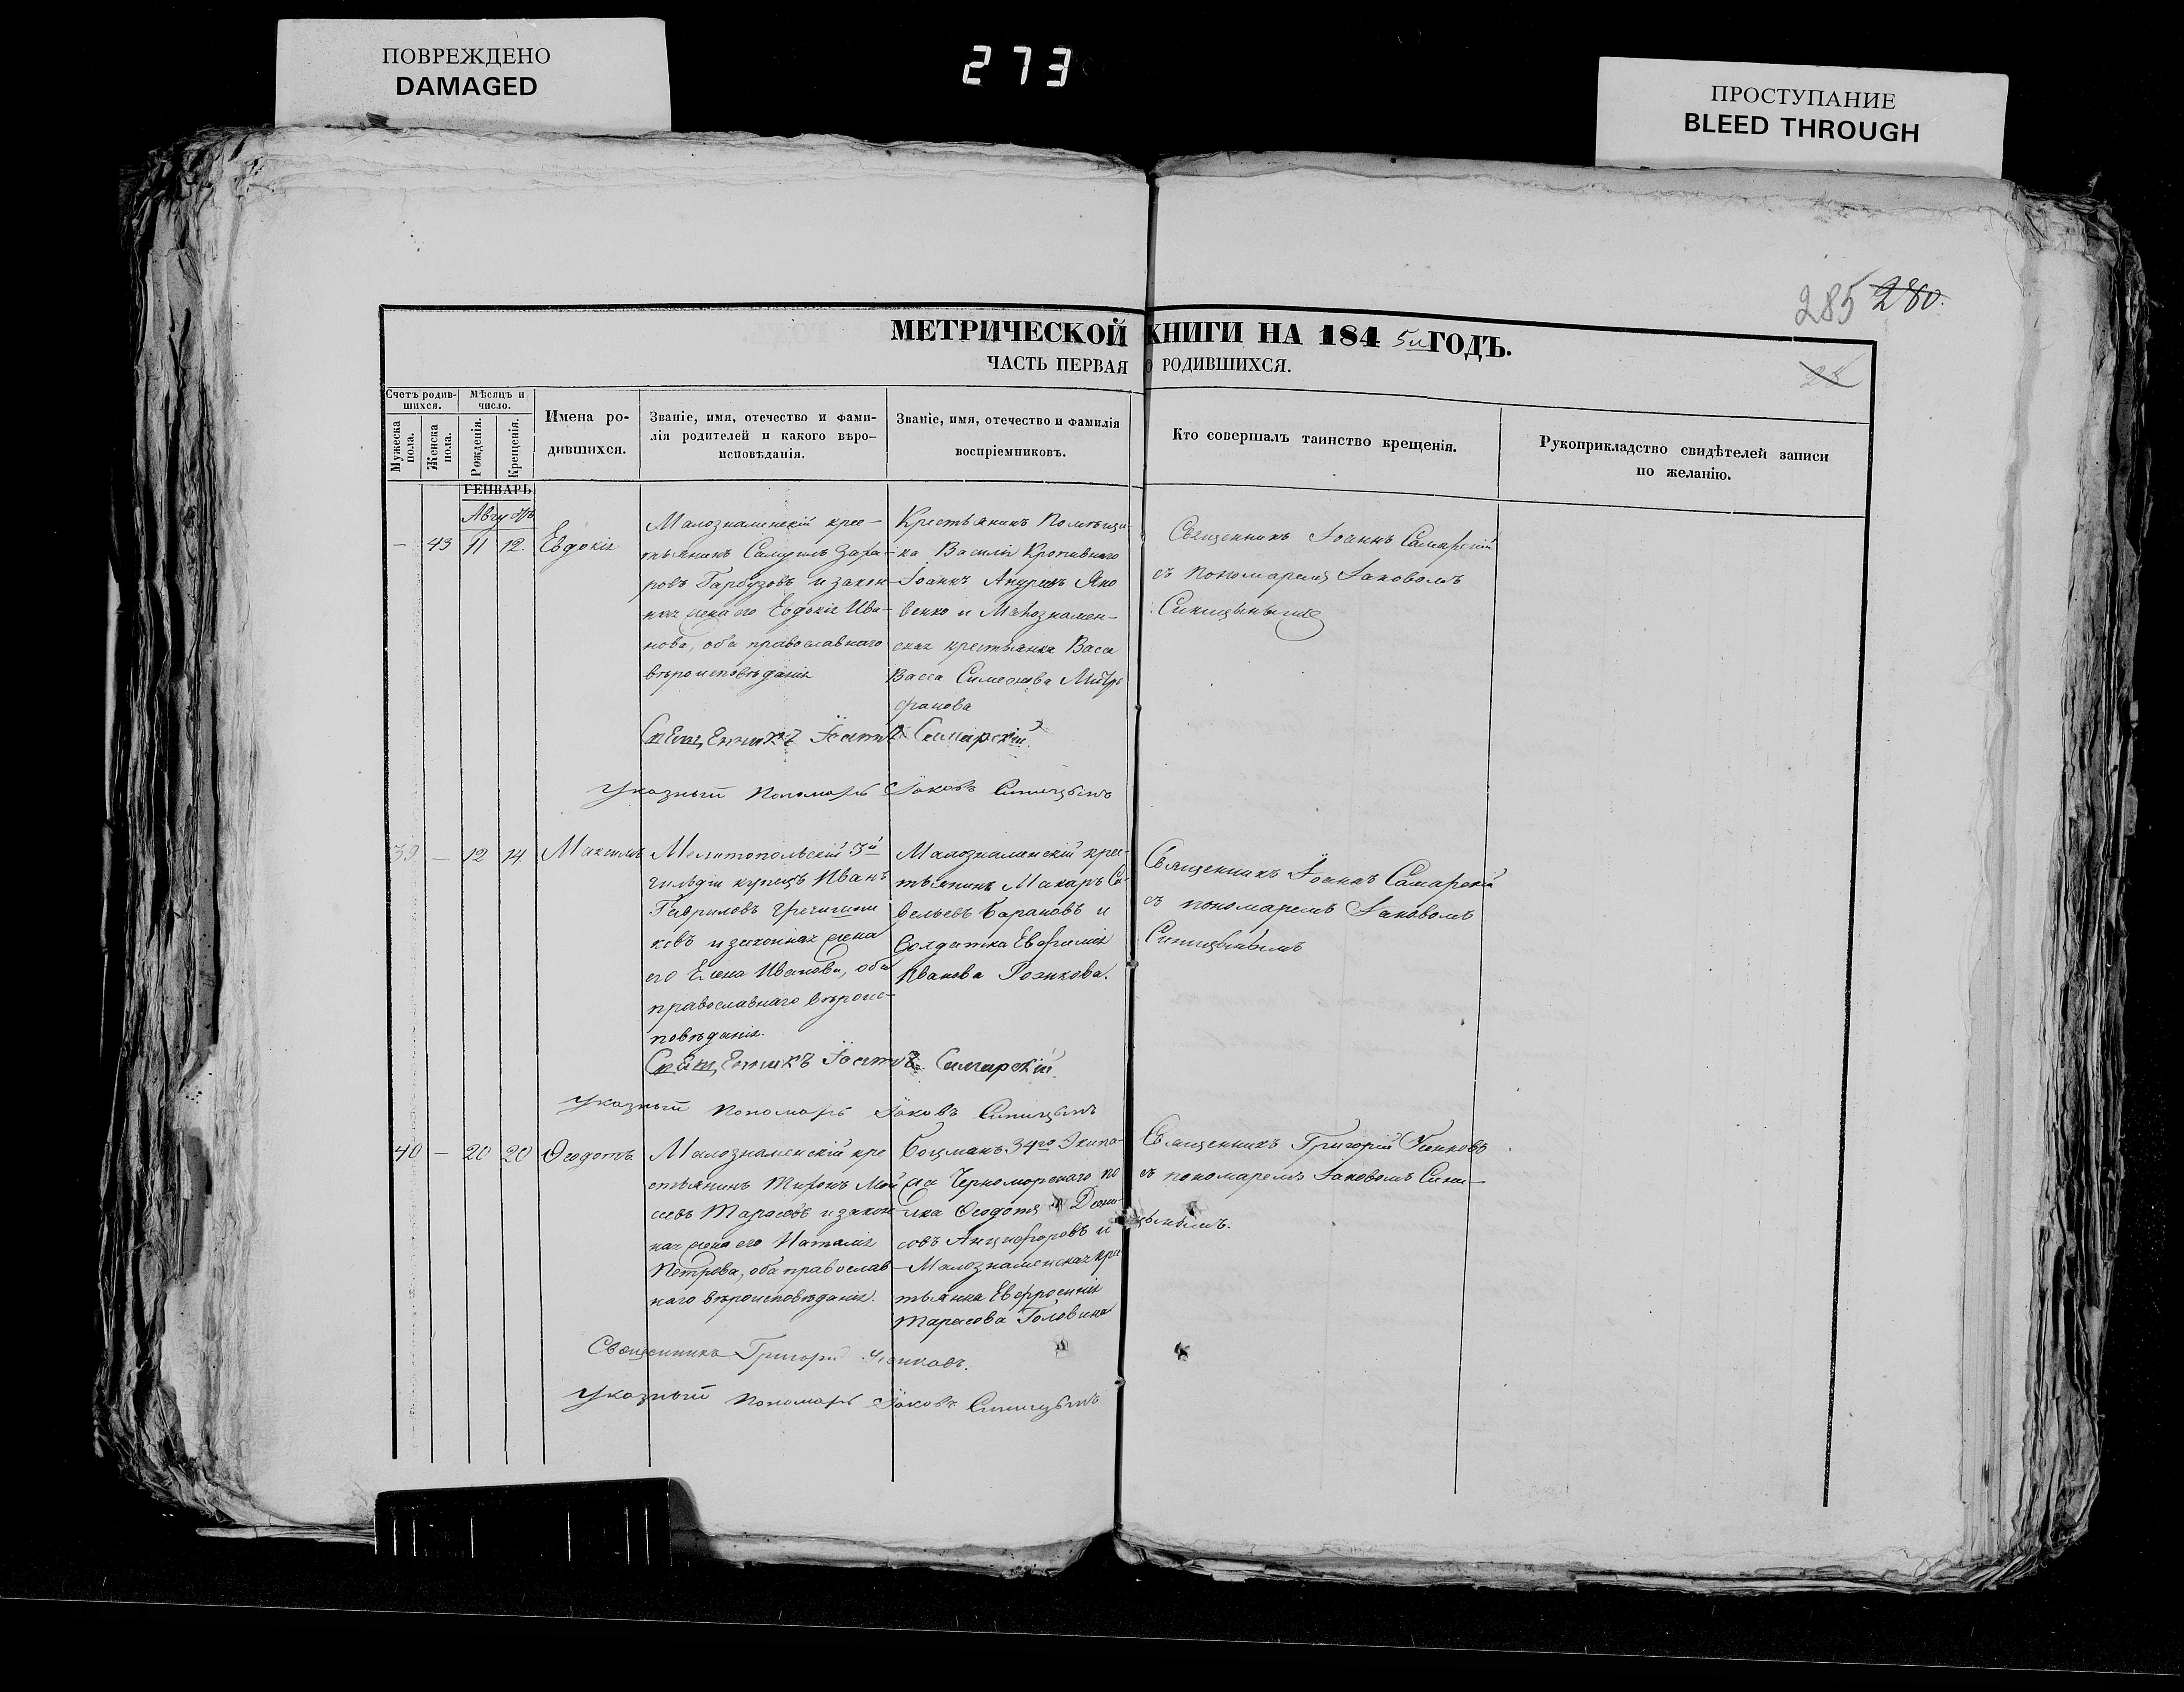 ПОВРЕЖДЕНО
DAMAGED
273
ПРОСТУПАНИЕ
BLEED THROUGH
285 280.
МЕТРИЧЕСКОЙ КНИГИ НА 1845й ГОДЪ.
ЧАСТЬ ПЕРВАЯ О РОДИВШИХСЯ.
28
Счетъ родив-
шихся.
Мужеска
пола.
Женска
пола.
Мѣсяцъ и
число.
Рожденія.
Крещенія.
Имена ро-
дившихся.
Званіе, имя, отечество и фами-
лія родителей и какого вѣро-
исповѣданія.
Званіе, имя, отечество и фамилія
воспріемниковъ.
Кто совершалъ таинство крещенія.
Рукоприкладство свидѣтелей записи
по желанію.
ГЕНВАРЬ
Августъ
— 43 11 12. Евдокія
Малознаменскій крес-
тьянинъ Самуилъ Заха-
ровъ Гарбузовъ и закон-
ная жена его Евдокія Ива-
нова, оба православнаго
вѣроисповѣданія
Крестьянинъ Помѣщи-
ка Василія Кропивнаго
Іоаннъ Андреевъ Яко
венко и Малознамен-
ская крестьянка Васса
Васса Симеонова Митро
фанова
Священникъ Іоаннъ Самарскій
съ пономаремъ Іаковомъ
Синицынымъ
Священникъ Іоаннъ Самарскій
Указный Пономарь Іаковъ Синицынъ
39 — 12 14 Максимъ
Мелитопольскій 3й
гильдіи купецъ Иванъ
Гавриловъ Гречишни
ковъ и законная жена
его Елена Иванова, оба
православнаго вѣроис-
повѣданія.
Малознаменскій крес-
тьянинъ Макаръ Са-
вельевъ Барановъ и
Солдатка Евфимія
Иванова Рознкова.
Священникъ Іоаннъ Самарскій
съ пономаремъ Іаковомъ
Синицынымъ
Священникъ Іоаннъ Самарскій
Указный Пономарь Іаковъ Синицынъ
40 — 20 20 Ѳеодотъ
Малознаменскій кре
стьянинъ Тихонъ Мои
сеевъ Тарасовъ и закон-
ная жена его Наталія
Петрова, оба православ-
наго вѣроисповѣданія.
Боцманъ 34го Экипа-
жа Черноморскаго по
лка Ѳеодотъ Дени-
совъ Анцифоровъ и
Малознаменская кре
тьянка Евфросинія
Тарасова Головина
Священникъ Григорій
съ пономаремъ Іаковомъ Сини-
цынымъ.
Священникъ Григорій
Указный Пономарь Іаковъ Синицынъ